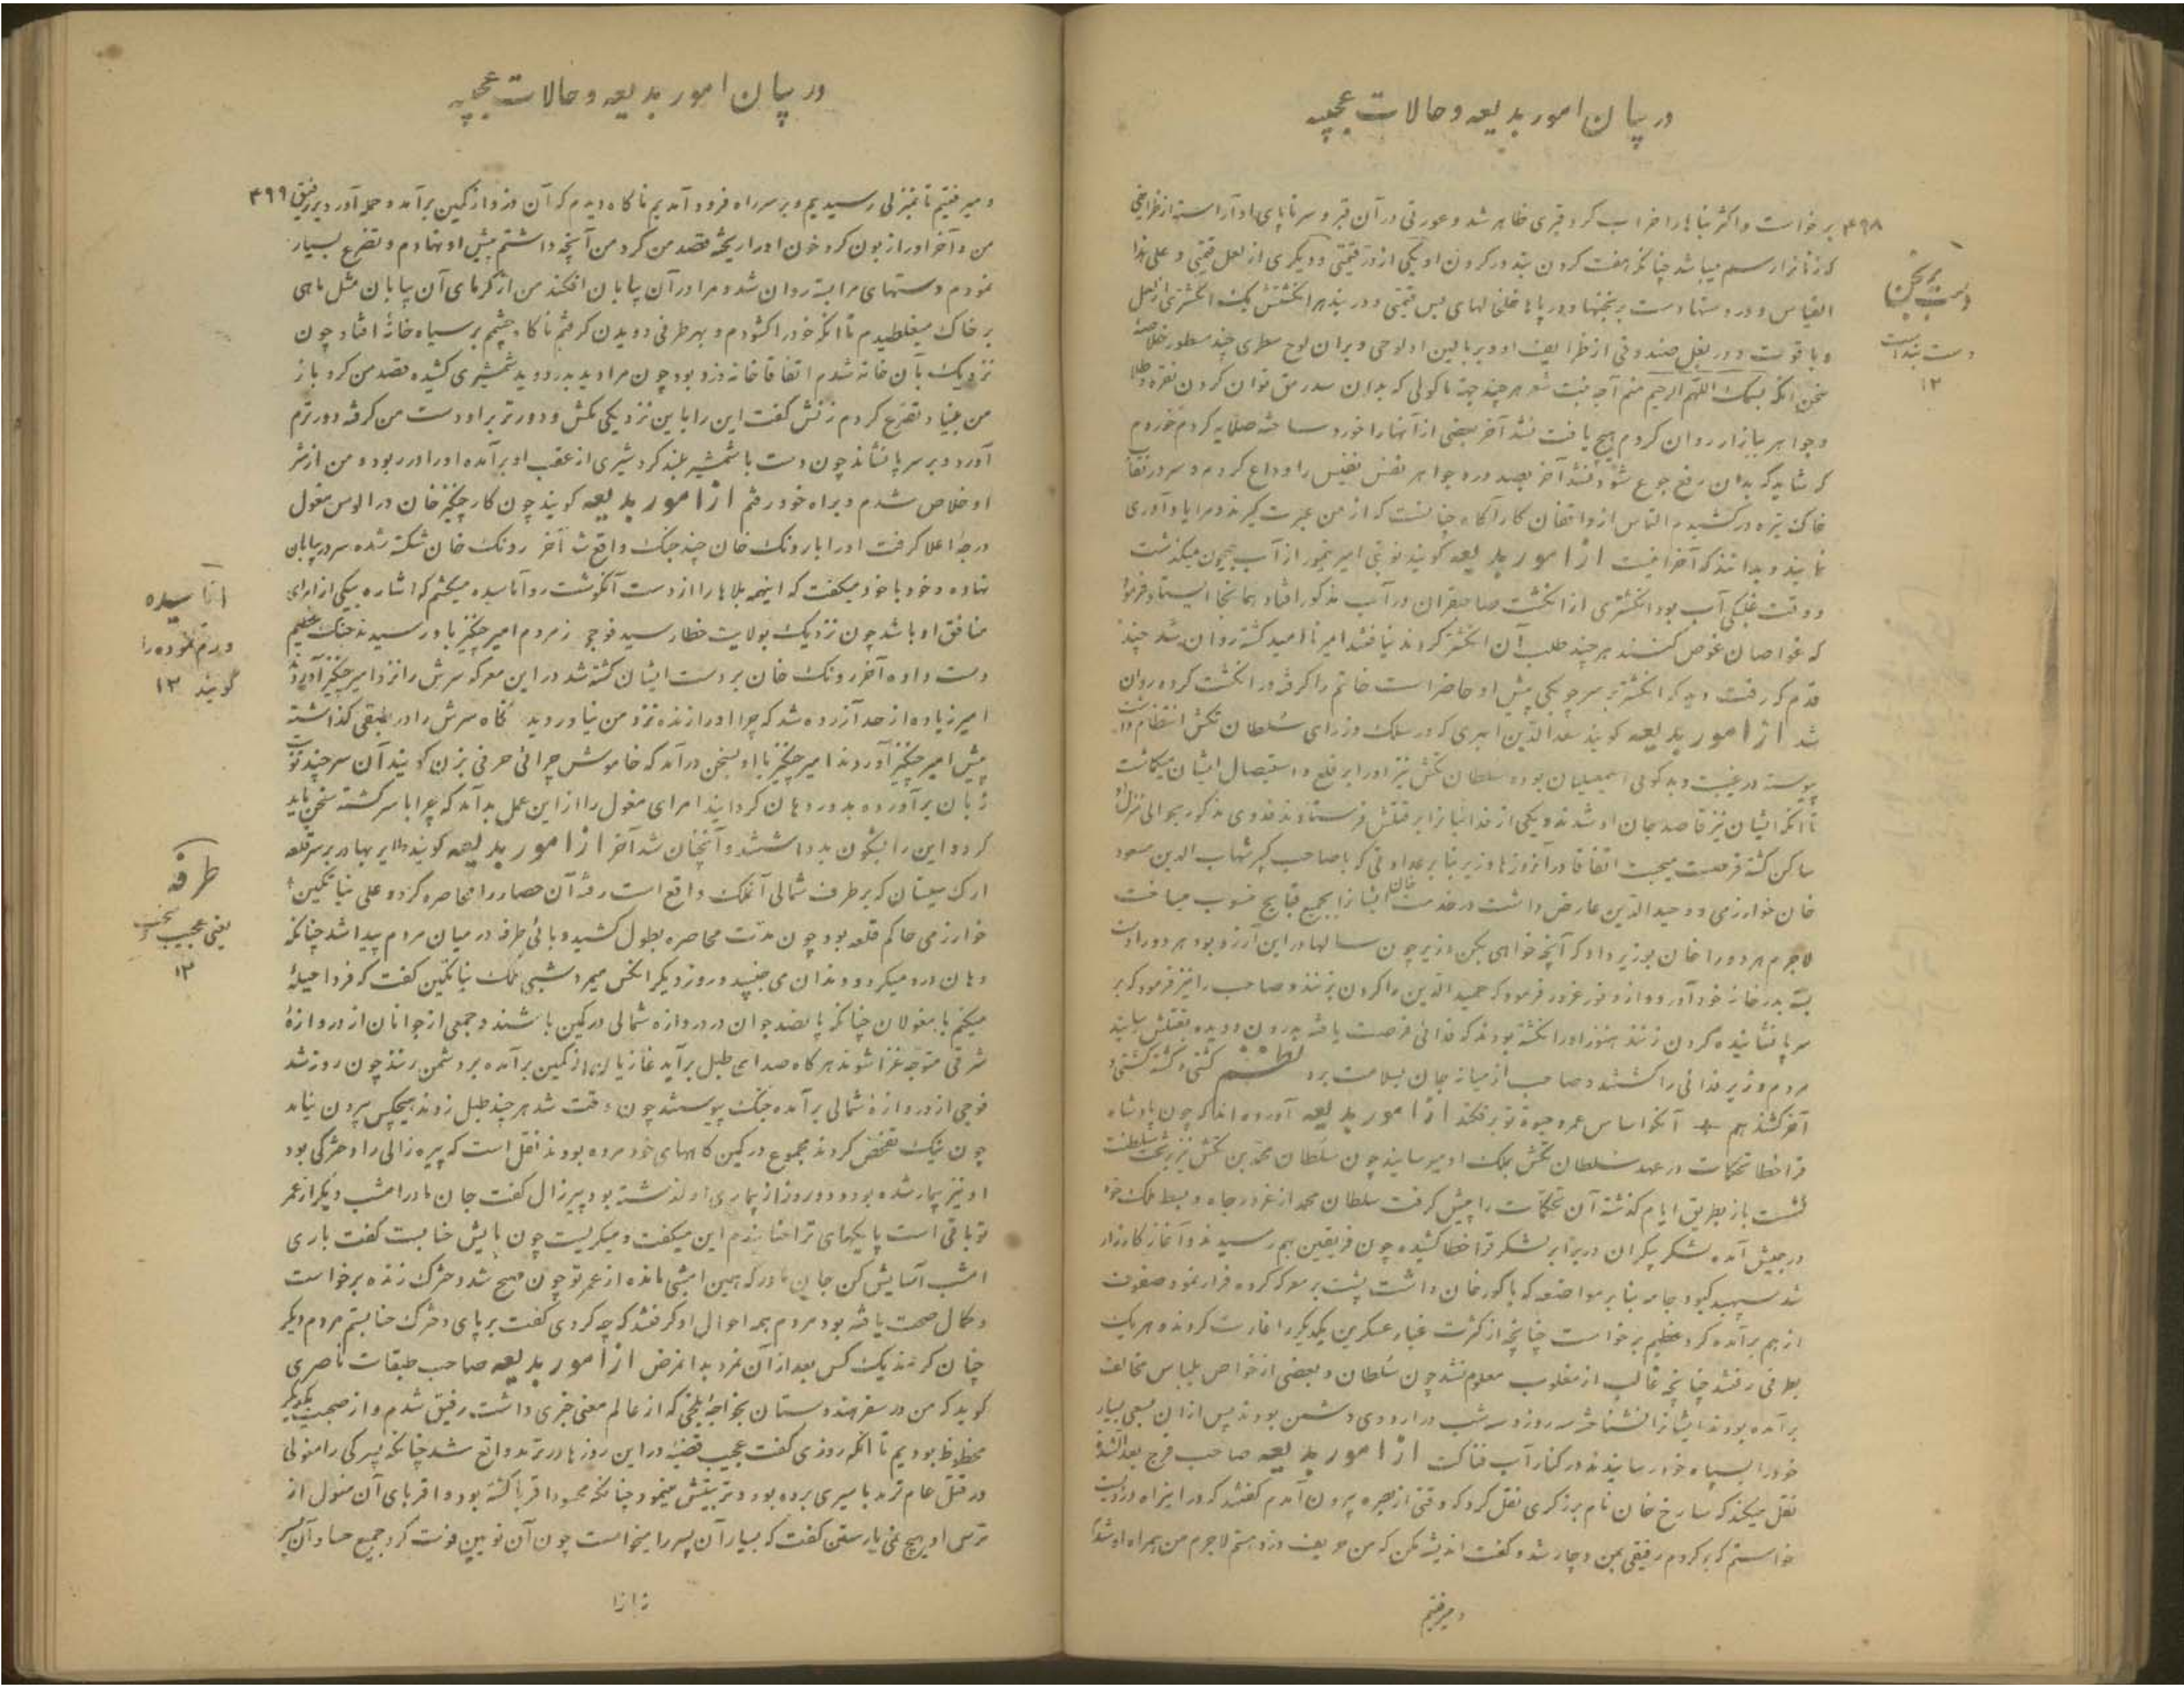 در بیان امور بدیعه و حالات عجیبه
۴۹۸ برخواست و اکثر بناها را خراب کرد قبری ظاهر شد و عورتی در آن قبر و سر تا پای او آراسته از ظرایفی
که زنانرا رسم میباشد چنانکه هفت گردن بند در گردن او یکی از در قیمتی و دیگری از لعل قیمتی و علی هذا
القیاس و در دستها دست برنجنها و در پاها خلخالهای بس قیمتی و در بند هر انگشتش یک انگشتری از لعل
و یاقوت و در بغل صندوقی از ظرایف او و بر بالین او لوحی و بر آن لوح سطری چند مسطور خلاصهٔ
سخن آنکه بسمک اللهم الرحیم منم آجه بنت هر چند جهة ماکولی که بدان سد رمق توان کردن نقره و طلا
و جواهر ببازار روان کردم هیچ یافت نشد آخر بعضی از آنها را خورد ساخته صلایه کردم خوردم
که شاید که بدان رفع جوع شود نشد آخر بصد درد جواهر نفس نفیس را وداع کردم و سر در نقاب
خاک تیره درکشیدم التماس از واقفان کارآگاه چنانست که از من عبرت گیرند و مرا یاد آوری
نمایند و بدانند که آخر از امور بدیعه گویند نوبتی امیر تیمور از آب جیحون میگذشت
و وقت غلبگی آب بود انگشتری از انگشت صاحبقران در آب مذکور افتاد همانجا ایستاد و فرمود
که غواصان غوص کنند هر چند طلب آن انگشتر کردند نیافتند امیر ناامید گشته روان شد چند
قدم که رفت دید که انگشتر بر سر چوبکی پیش او حاضر است خاتم را گرفته در انگشت کرده روان
شد از امور بدیعه گویند سعدالدین ابهری که در سلک وزرای سلطان تکش انتظام داشت
پیوسته در غیبت و بدگوئی اسمعیلیان بوده سلطان تکش نیز او را بر قلع و استیصال ایشان میگماشت
تا آنکه ایشان نیز قاصد جان او شدند و یکی از فدائیانرا بر قتلش فرستادند فدوی مذکور بحوالی منزل او
ساکن گشته فرصت میجست اتفاقا در آنروزها وزیر بنا بر عداوتی که با صاحب کبیر شهاب الدین مسعود
خان خوارزمی و حمیدالدین عارض داشت در خدمت خان ایشانرا بجمیع قبایح منسوب میساخت
لاجرم هر دو را خان بوزیر داد که آنچه خواهی بکن وزیر چون سالها در این آرزو بود هر دو را دست
بسته بدر خانهٔ خود آورد و از وفور غرور فرمود که حمیدالدین را گردن بزنند و صاحب را نیز فرمود که بر
سر پا نشانیده گردن زنند هنوز او را نکشته بودند که فدائی فرصت یافته بدرون دویده بقتلش رسانید
مردم وزیر فدائی را کشتند و صاحب از میانه جان بسلامت برد کشتی و کشته گشتی و
آخر کشند هم آنکو اساس عمر و حیوة تو برفکند از امور بدیعه آورده‌اند که چون پادشاه
قراخطا تحکمات در عهد سلطان تکش بملک او میرسانید چون سلطان محمد بن تکش نیز بر تخت سلطنت
نشست باز بطریق ایام گذشته آن تحکمات را پیش گرفت سلطان محمد از غرور جاه و بسط ملک خود
در جیش آمده لشکر بیکران در برابر لشکر قراخطا کشیده چون فریقین بهم رسیدند و آغاز کارزار
شد سپهبد کبود جامه بنا بر مواضعه که با گورخان داشت پشت بر معرکه کرده فرار نمود صفوف
از هم برآمده گرد عظیم برخواست چنانچه از کثرت غبار عسکرین یکدیگر را غارت کردند و هر یک
بطرفی رفتند چنانچه غالب از مغلوب معلوم نشد چون سلطان و بعضی از خواص بلباس مخالف
برآمده بودند ایشانرا نشناختند سه روز و سه شب در اردوی دشمن بودند پس از آن بسعی بسیار
خود را بسپاه خود رسانیدند در کنار آب فناکت از امور بدیعه صاحب فرج بعدالشدة
نقل میکند که سارخ خان نام بزرگری نقل کرد که وقتی از بصره بیرون آمدم گفتند که در این راه دزدیست
خواستم که برگردم رفیقی بمن دچار شد و گفت اندیشه مکن که من حریف دزد هستم لاجرم من همراه او شدم
و میرفتیم
دست برنجن
دست بند است
۱۲
در بیان امور بدیعه و حالات عجیبه
و میرفتیم تا بمنزلی رسیدیم و بر سر راه فرود آمدیم ناگاه دیدم که آن دزد از کمین برآمد و حمله آورد بر رفیق ۴۹۹
من و آخر او را زبون کرد خون او را ریخته قصد من کرد من آنچه داشتم پیش او نهادم و تضرع بسیار
نمودم دستهای مرا بسته روان شد و مرا در آن بیابان افکند من از گرمای آن بیابان مثل ماهی
بر خاک میغلطیدم تا آنکه خود را گشودم و بهر طرفی دویدن گرفتم ناگاه چشمم بر سیاه خانهٔ افتاد چون
نزدیک بآن خانه شدم اتفاقا خانه دزد بود چون مرا دید بدر دوید شمشیری کشیده قصد من کرد باز
من بنیاد تضرع کردم زنش گفت این را باین نزدیکی مکش و دورتر بر او دست من گرفته دورترم
آورد و بر سر پا نشاند چون دست با شمشیر بلند کرد شیری از عقب او برآمده او را در ربود و من از شر
او خلاص شدم و براه خود رفتم از امور بدیعه گویند چون کار چنگیز خان در الوس مغول
درجهٔ اعلا گرفت او را با رونک خان چند جنگ واقع شد آخر رونک خان شکسته شده سر در بیابان
نهاده و خود با خود میگفت که اینهمه بلاها را از دست آنگوشت رو آناسیده میکشم که اشاره بیکی از امرای
منافق او باشد چون نزدیک بولایت خطا رسید فوجی ز مردم امیر چنگیز باو رسیدند جنگ عظیم
دست داده آخر رونک خان بر دست ایشان کشته شد در این معرکه سرش را نزد امیر چنگیز آوردند
امیر زیاده از حد آزرده شد که چرا او را زنده نزد من نیاوردید نگاه سرش را در طبقی گذاشته
پیش امیر چنگیز آوردند امیر چنگیز با او بسخن درآمد که خاموش چرائی حرفی بزن گویند آن سر چند نوبت
زبان برآورده بدور دهان گردانید امرای مغول را از این عمل بد آمد که چرا با سر کشته سخن باید
کرد و این را بشگون بد داشتند و آنچنان شد آخر از امور بدیعه گویند والایر بهادر بر سر قلعه
ارک سیستان که بر طرف شمالی آنملک واقع است رفته آن حصار را محاصره کرد و علی نیاتکین
خوارزمی حاکم قلعه بود چون مدت محاصره بطول کشید وبائی طرفه در میان مردم پیدا شد چنانکه
دهان درد میکرد و دندان می‌جنبید و روز دیگر آنکس میمرد شبی ملک نیاتکین گفت که فردا حیلهٔ
میکنم با مغولان چنانکه پانصد جوان در دروازه شمالی در کمین باشند و جمعی از جوانان از دروازهٔ
شرقی متوجه غزا شوند هر گاه صدای طبل برآید غازیان از کمین برآمده بر دشمن زنند چون روز شد
فوجی از دروازهٔ شمالی برآمده جنگ پیوستند چون وقت شد هر چند طبل زدند هیچکس بیرون نیامد
چون نیک تفحص کردند مجموع در کمین گاههای خود مرده بودند نقل است که پیره زالی را دخترکی بود
او نیز بیمار شده بود و دو روز از بیماری او گذشته بود پیرزال گفت جان مادر امشب دیگر از عمر
تو باقی است پایکهای ترا حنا بندم این میگفت و میگریست چون پایش حنا بست گفت باری
امشب آسایش کن جان مادر که همین امشبی مانده از عمر تو چون صبح شد دخترک زنده برخواست
و کمال صحت یافته بود مردم همه احوال او گرفتند که چه کردی گفت بر پای دخترک حنا بستم مردم دیگر
چنان کردند یک کس بعد از آن نمرد بدانمرض از امور بدیعه صاحب طبقات ناصری
گوید که من در سفر هندوستان بخواجهٔ بلخی که از عالم معنی خبری داشت رفیق شدم و از صحبت یکدیگر
محظوظ بودیم تا آنکه روزی گفت عجیب قضیه در این روزها در ترمد واقع شد چنانکه پسرکی را مغولی
در قتل عام ترمد باسیری برده بود و تربیتش مینمود چنانکه محسود اقربا گشته بود و اقربای آن مغول از
ترس او هیچ نمی‌یارستن گفت که بسیار آن پسر را میخواست چون آن نویین فوت کرد جمیع حساد آن پسر
انا سیده
ورم نموده را
گویند ۱۲
طرفه
یعنی عجیب
۱۲